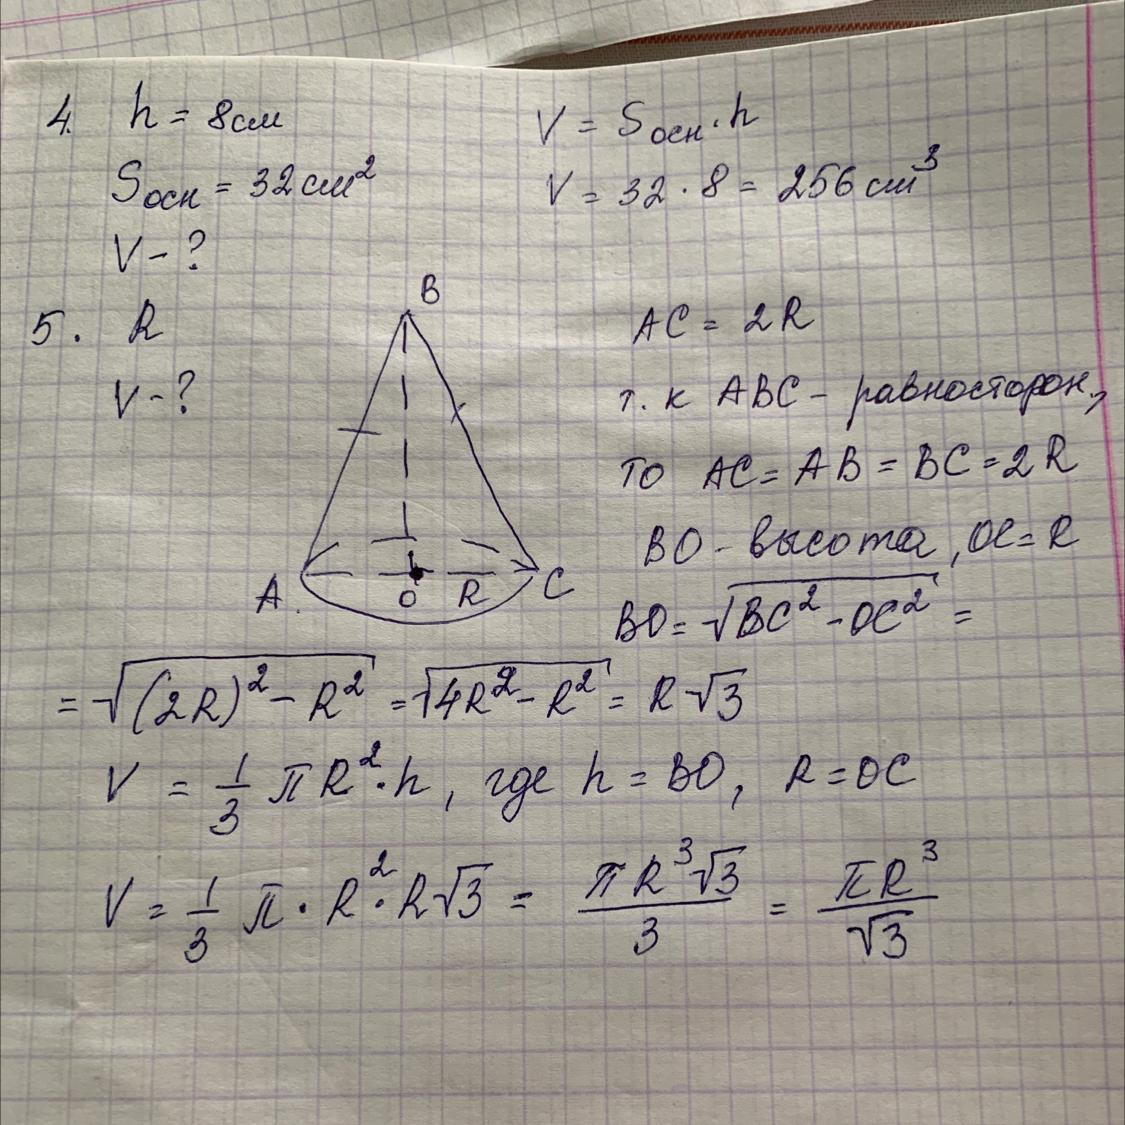 4. h = 8см
V = Sосн · h
Sосн = 32 см²
V = 32 · 8 = 256 см³
V - ?
5. R
V - ?
B
A
O
R
C
AC = 2R
т. к ABC - равносторон,
то AC = AB = BC = 2R
BO - высота, OC = R
BO = √(BC² - OC²) =
= √((2R)² - R²) = √(4R² - R²) = R√3
V = 1/3 πR² · h, где h = BO, R = OC
V = 1/3 π · R² · R√3 = πR³√3/3 = πR³/√3